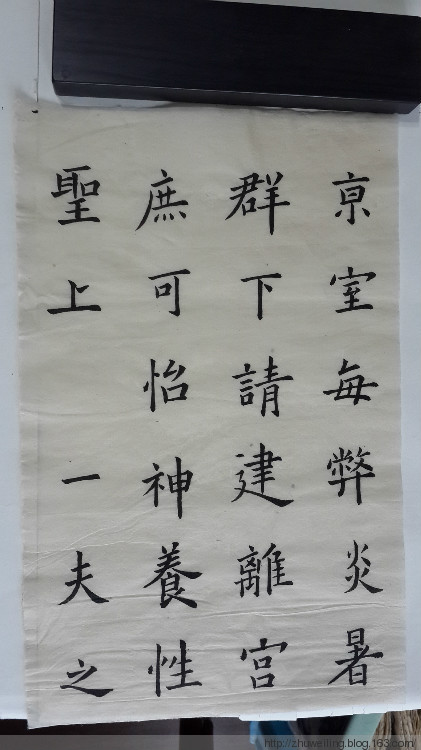 京室每弊炎暑
群下請建離宮
庶可怡神養性
聖上一夫之
http://zhuweiling.blog.163.com